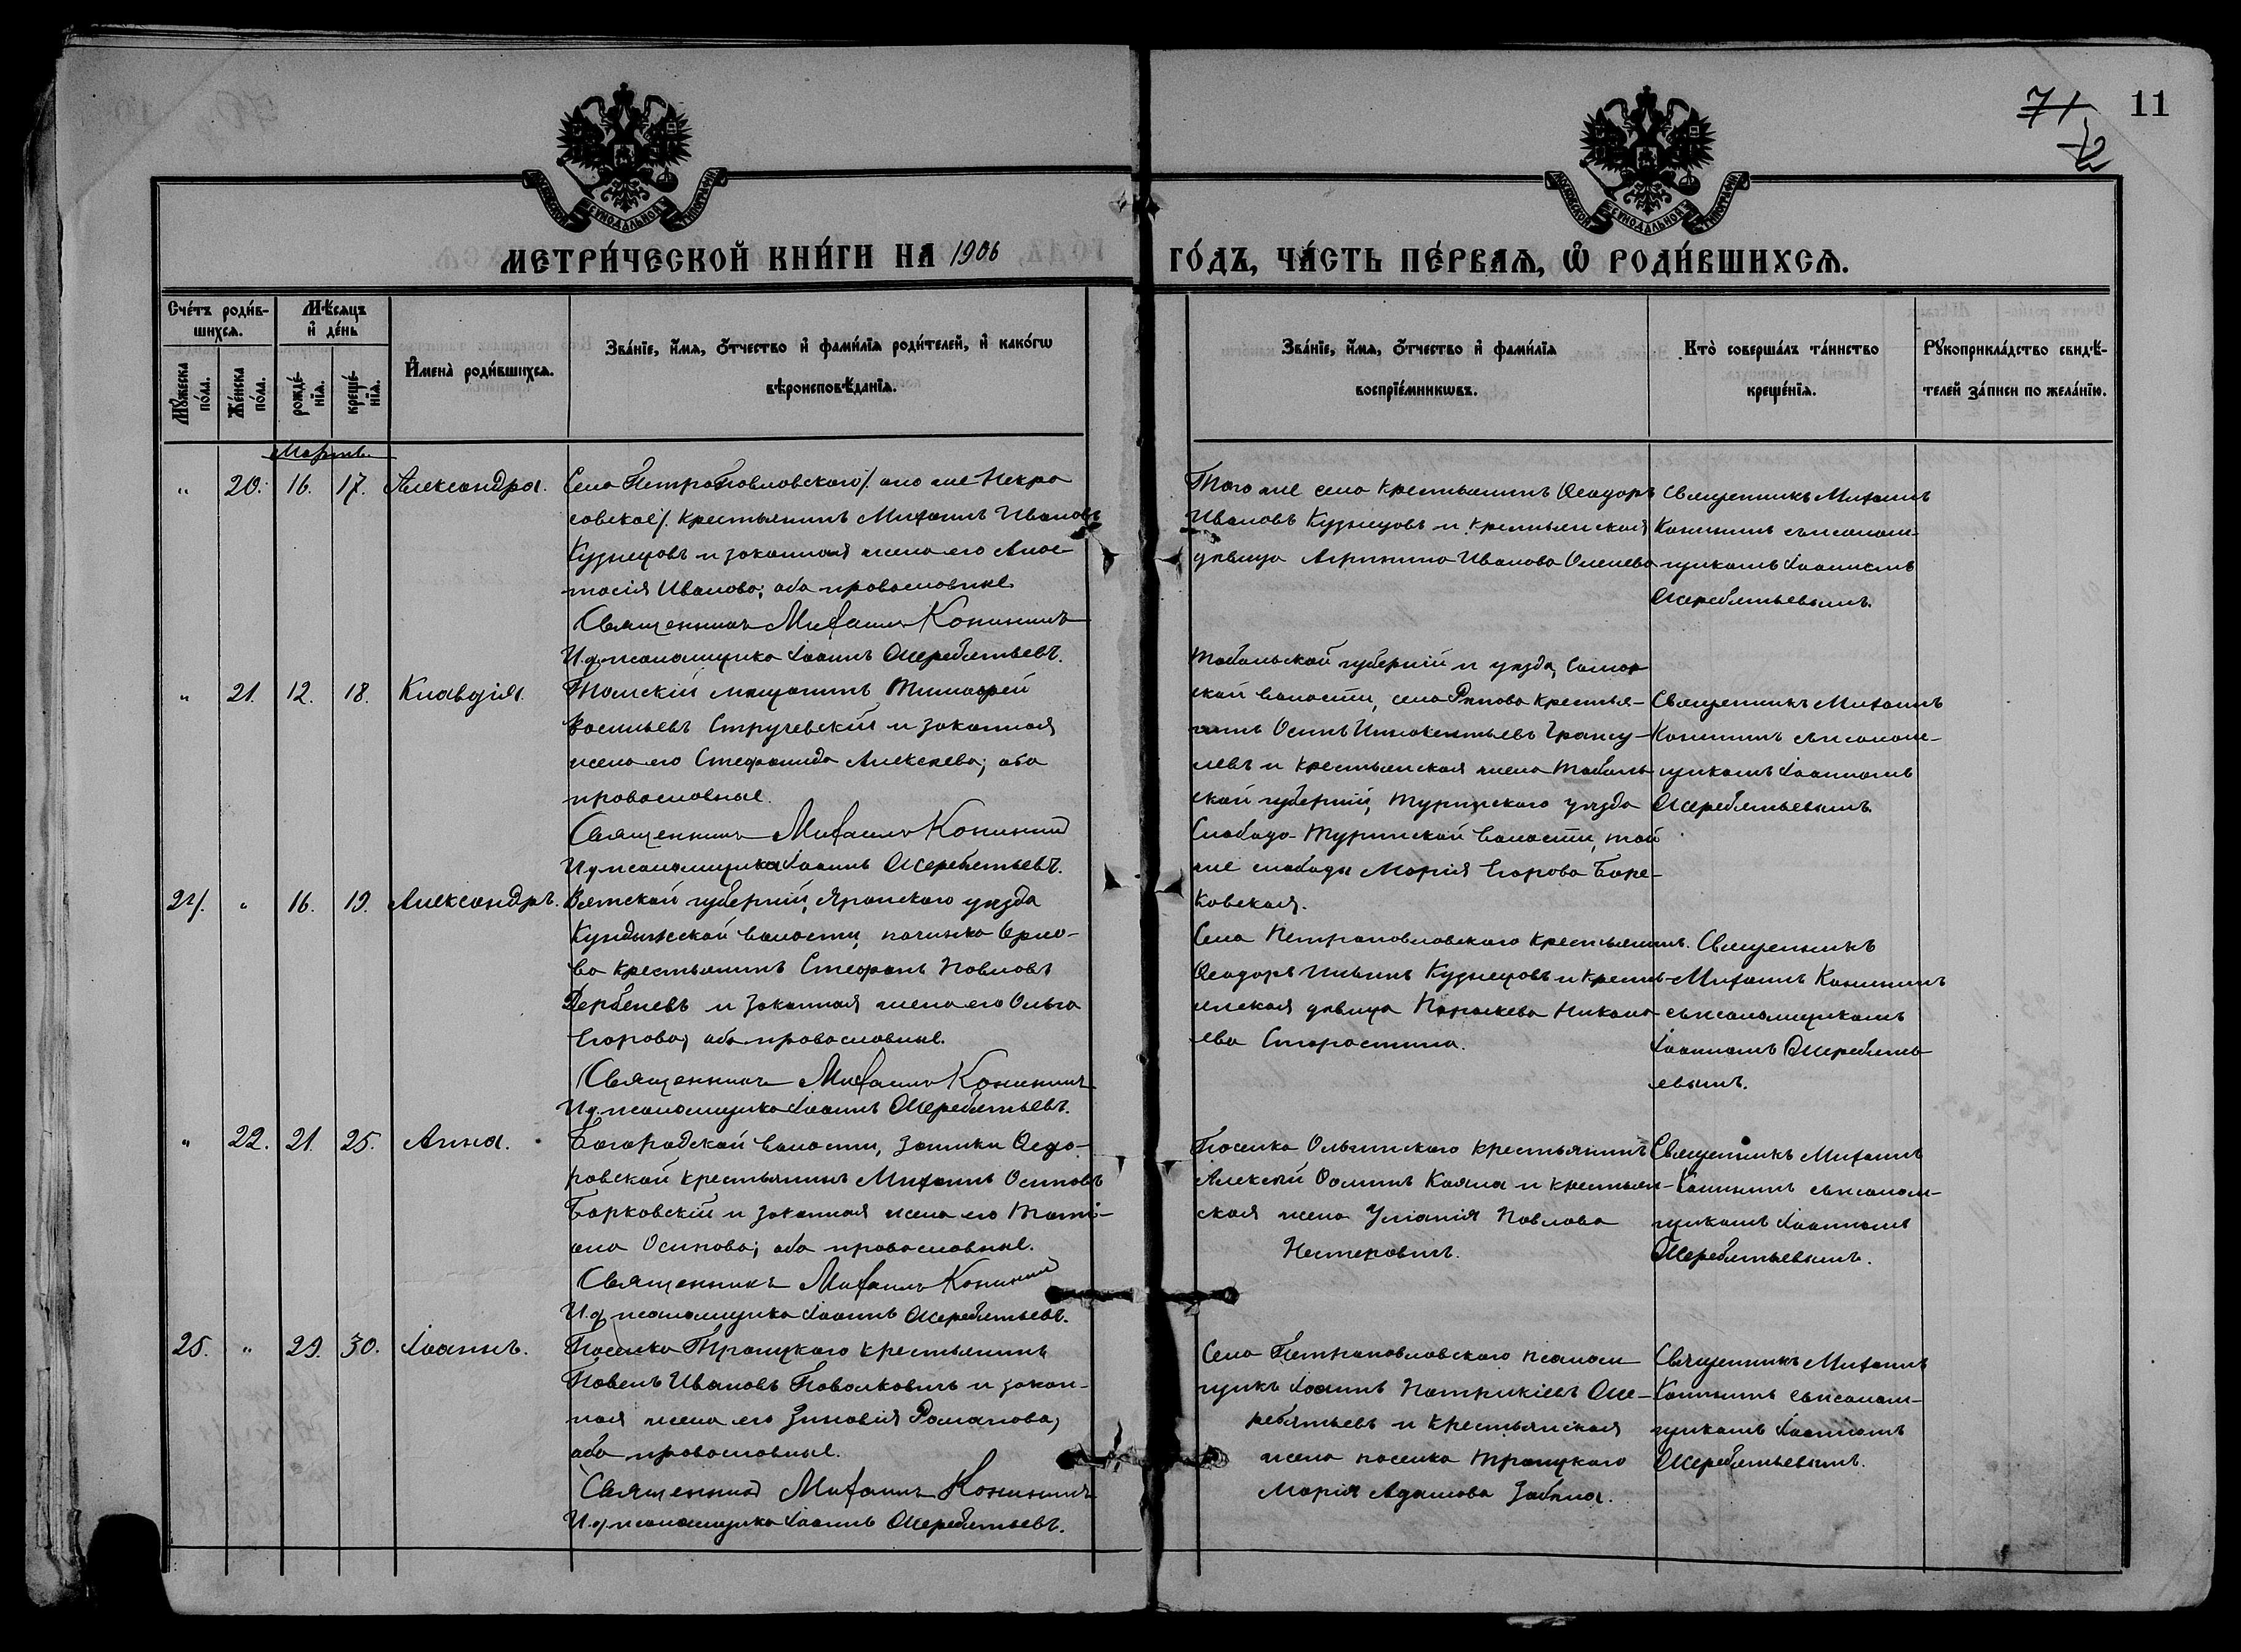 71
72
11
МОСКОВСКОЙ СУНОДАЛЬНОЙ ТИПОГРАФІИ
МОСКОВСКОЙ СУНОДАЛЬНОЙ ТИПОГРАФІИ
МЕТРИ́ЧЕСКОЙ КНИ́ГИ НА 1906
ГО́ДЪ, ЧА́СТЬ ПЕ́РВАѦ, Ѽ РОДИ́ВШИХСѦ.
Сче́тъ роди́в-
шихсѧ.
Мѣ́сѧцъ
и҆ де́нь
И҆мена̀ роди́вшихсѧ.
Зва́нїе, и҆́мѧ, ѻ҆́тчество и҆ фами́лїѧ роди́телей, и҆ како́гѡ
вѣроисповѣ́данїѧ.
Мꙋ́жеска
по́ла.
Же́нска
по́ла.
рожде́-
нїѧ.
креще́-
нїѧ.
Зва́нїе, и҆́мѧ, ѻ҆́тчество и҆ фами́лїѧ
воспрїе́мникѡвъ.
Кто̀ соверша́лъ та́инство
креще́нїѧ.
Рꙋкоприкла́дство свидѣ́-
телей за́писи по жела́нїю.
Мартъ.
" 20. 16. 17. Александра.
Села Петропавловскаго/. оно же Некра
совское/. крестьянинъ Михаилъ Ивановъ
Кузнецовъ и законная жена его Анас-
тасія Иванова; оба православные
Священникъ Михаилъ Конининъ
И.д. псаломщика Іоаннъ Жеребятьевъ.
Того же села крестьянинъ Ѳеодоръ
Ивановъ Кузнецовъ и крестьянская
дѣвица Агрипина Иванова
Священникъ Михаилъ
Конининъ съ псалом-
щикомъ Іоанномъ
Жеребятьевымъ.
" 21. 12. 18. Клавдія.
Томскій мѣщанинъ Тимоѳей
Васильевъ Стручевскій и законная
жена его Стефанида Алексѣева; оба
православные.
Священникъ Михаилъ Конининъ
И.д. псаломщика Іоаннъ Жеребятьевъ.
Тобольской губерніи и уѣзда,
ской волости, села крестья-
нинъ Осипъ Иннокентьевъ
левъ и крестьянская жена Тоболь-
ской губерніи, Туринскаго уѣзда
Слободо-Туринской волости, той
же слободы Марія Егорова Боре-
ковская.
Священникъ Михаилъ
Конининъ съ псалом-
щикомъ Іоанномъ
Жеребятьевымъ
24. " 16. 19. Александръ.
Вятской губерніи, Яранскаго уѣзда
Кундышской волости, починка Ермо-
ва крестьянинъ Стефанъ Павловъ
Дербеневъ и законная жена его Ольга
Егорова; оба православные.
Священникъ Михаилъ Конининъ
И.д. псаломщика Іоаннъ Жеребятьевъ.
Села Петропавловскаго крестьянинъ
Ѳеодоръ Ильинъ Кузнецовъ и кресть-
янская дѣвица Параскева Никола-
ева Старостина.
Священникъ
Михаилъ Конининъ
съ псаломщикомъ
Іоанномъ Жеребять-
евымъ.
" 22. 21. 25. Анна.
Богородской волости, заимки Ѳедо-
ровской крестьянинъ Михаилъ Осиповъ
Барковскій и законная жена его Тати-
ана Осипова; оба православные.
Священникъ Михаилъ Конининъ
И.д. псаломщика Іоаннъ Жеребятьевъ.
Поселка Ольгинскаго крестьянинъ
Алексѣй Ѳоминъ Каяла и крестьян-
ская жена Уліанія Павлова
Нестеровичъ.
Священникъ Михаилъ
Конининъ съ псалом-
щикомъ Іоанномъ
Жеребятьевымъ.
25. " 29. 30. Іоаннъ.
Поселка Троицкаго крестьянинъ
Павелъ Ивановъ Поволковичъ и закон-
ная жена его Зиновія Романова,
оба православные.
Священникъ Михаилъ Конининъ
И.д. псаломщика Іоаннъ Жеребятьевъ.
Села Петропавловскаго псалом
щикъ Іоаннъ Патрикіевъ Же-
ребятьевъ и крестьянская
жена поселка Троицкаго
Марія Адамова
Священникъ Михаилъ
Конининъ съ псалом-
щикомъ Іоанномъ
Жеребятьевымъ.